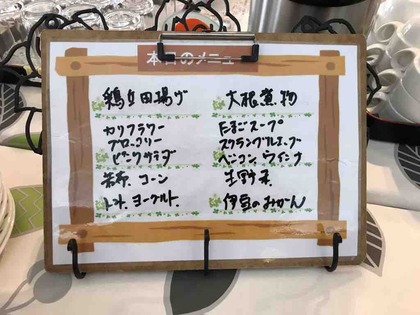 本日のメニュー
鶏竜田揚げ
カリフラワー
ブロッコリー
ビーンズサラダ
若布 コーン
トマト ヨーグルト
大根煮物
たまごスープ
スクランブルエッグ
ベーコン ウインナー
生野菜
伊豆のみかん